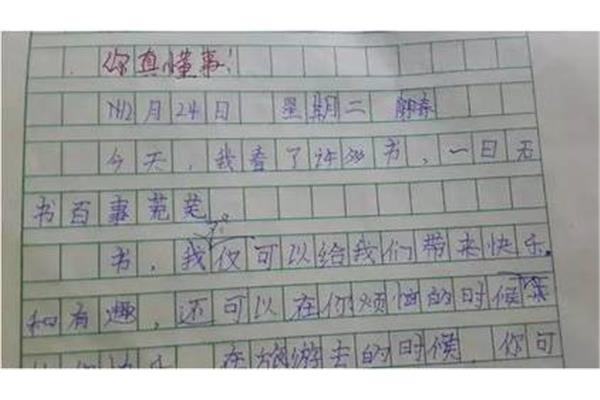 你真懂事!
12月24日 星期二
今天,我看了许多书,一日无
书百事荒芜
书,我不仅可以给我们带来快乐,
和有趣,还可以在你烦恼的时候
在旅游去的时候,你可